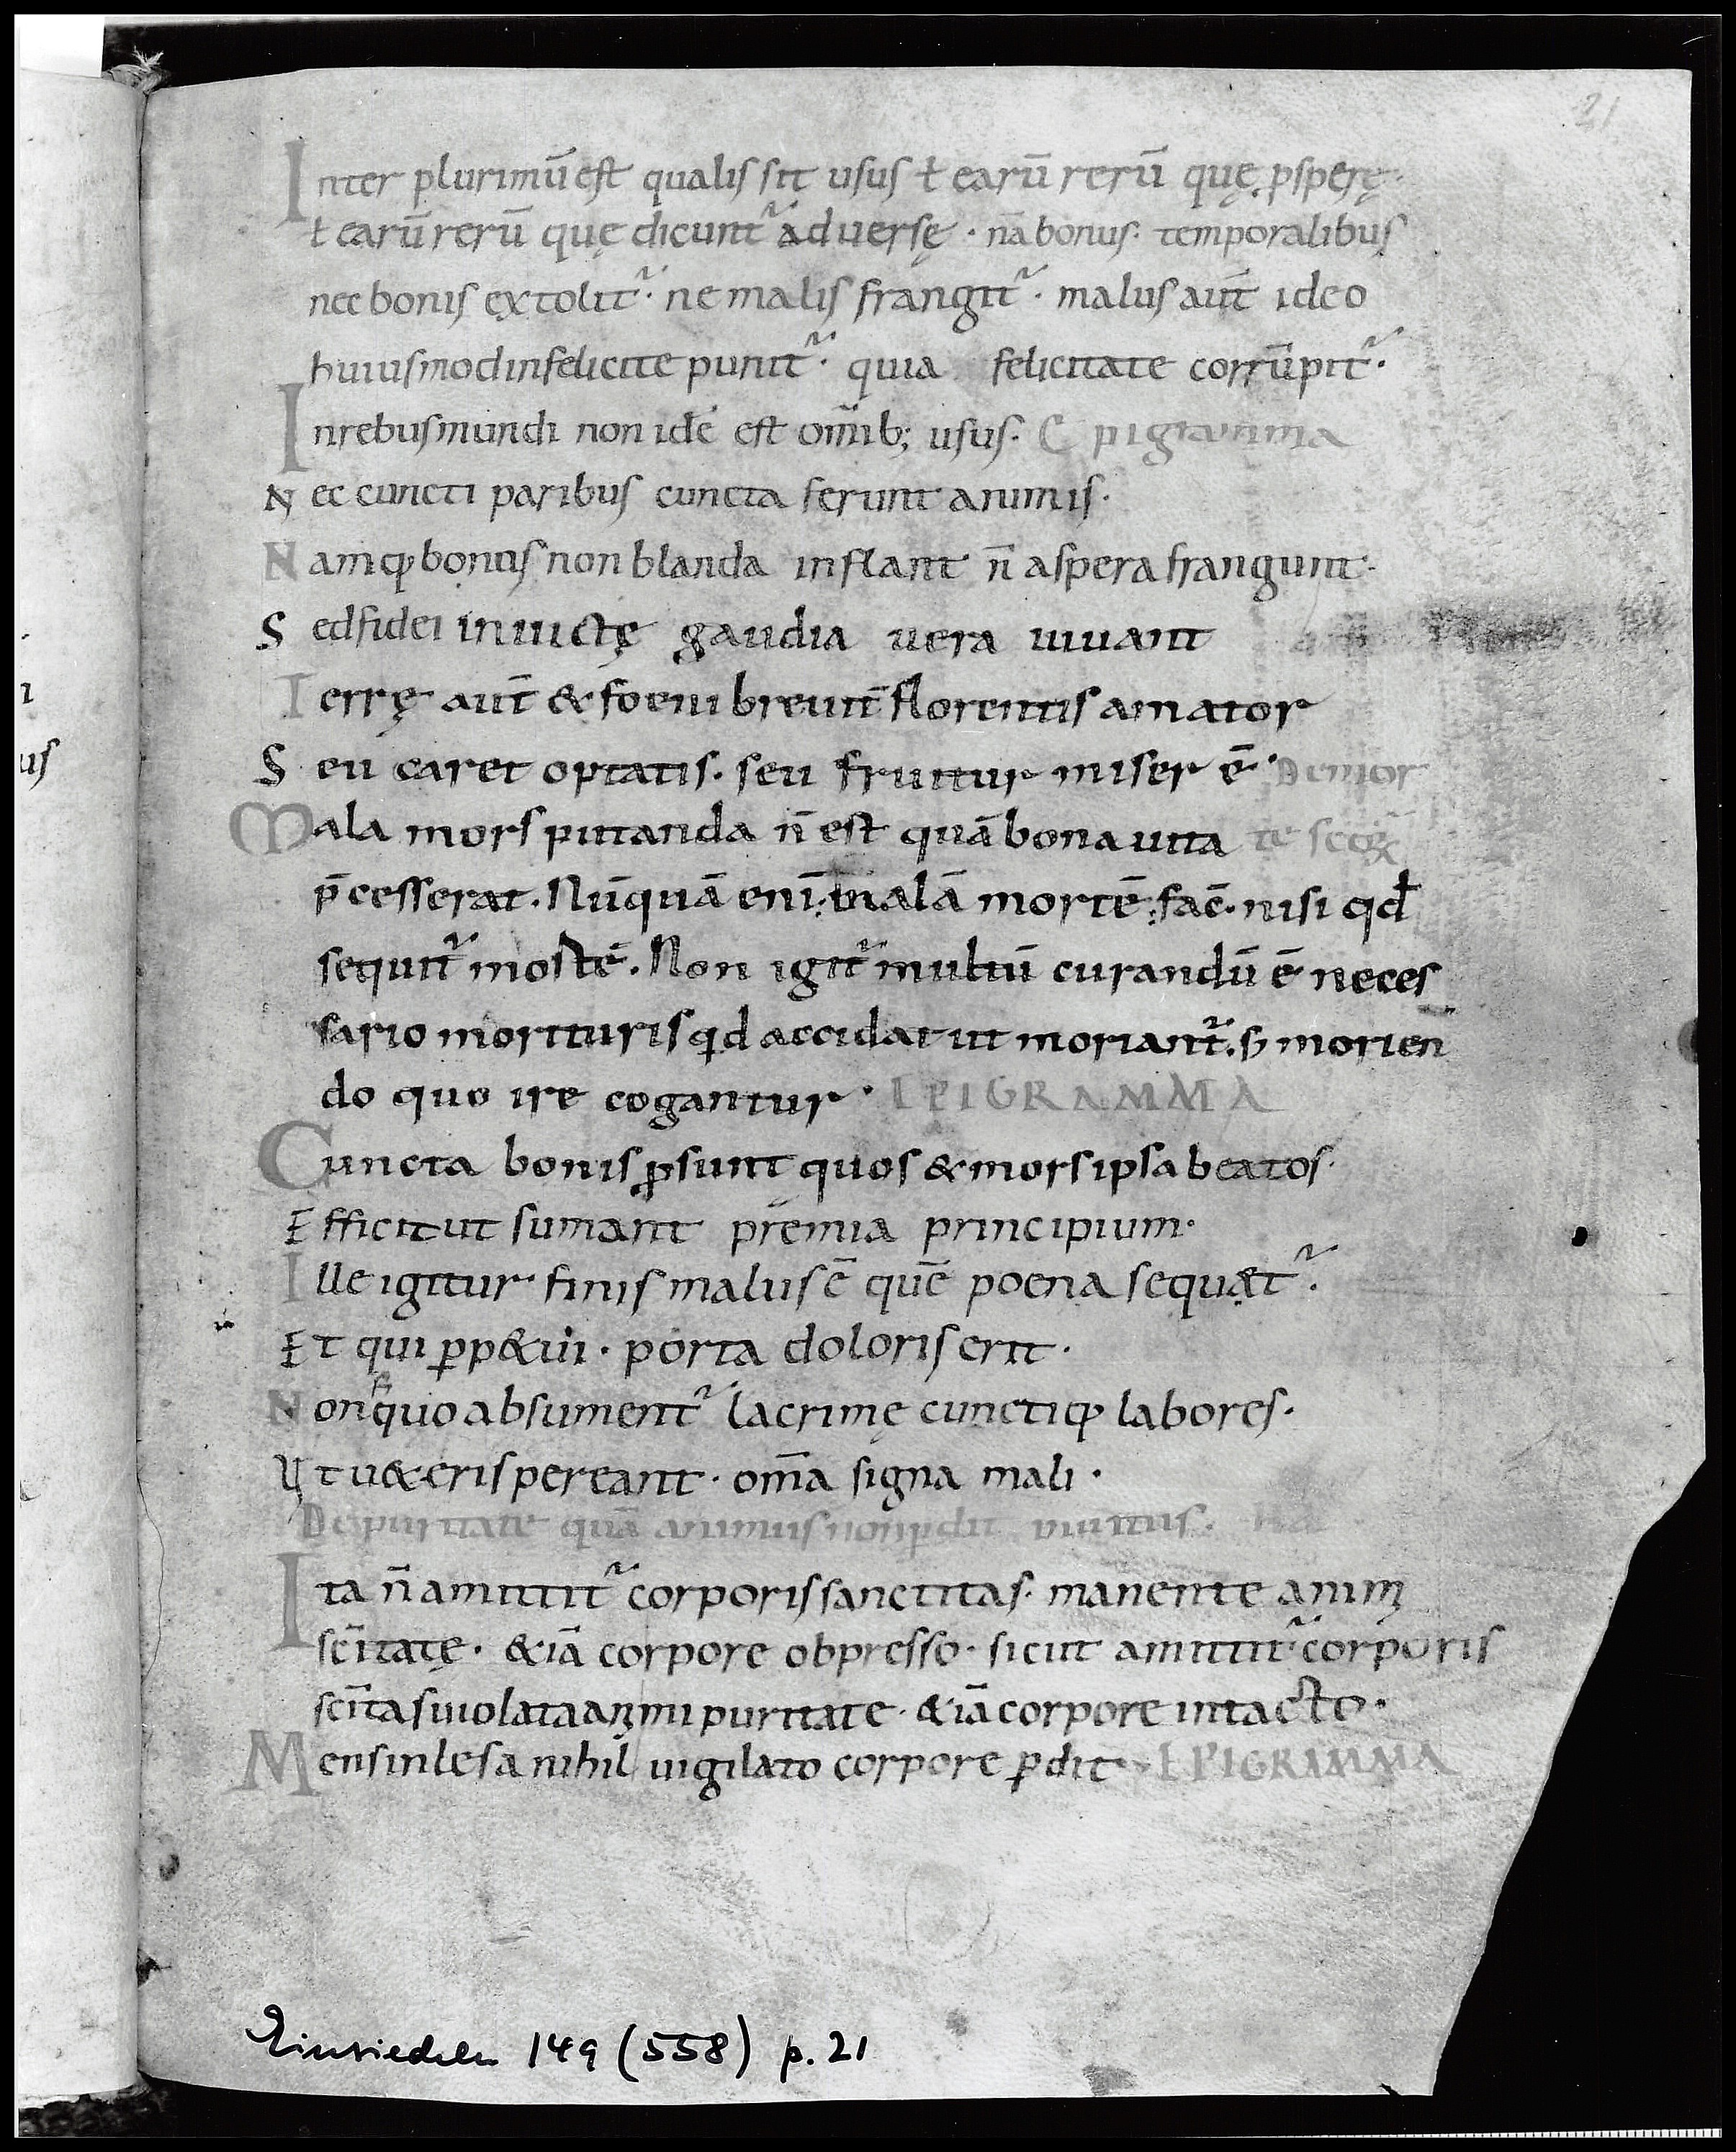 21
Inter plurimū est qualis sit usus ł earū rerū quę pspere
ł earū rerū quę dicunt᷑ aduersę · nā bonus · temporalibus
nec bonis extolit᷑ · ne malis frangit᷑ · malus aut̄ ideo
huiusmodinfelicite punit᷑ · quia felicitate corrūpit᷑ ·
In rebus mundi non idē est om̄ib; usus · Epigramma
Nec cuncti paribus cuncta ferunt animis ·
Namq; bonus non blanda inflant n̄ aspera frangunt ·
Sed fidei inuictę gaudia uera iuuant
Terrę aut̄ & foeni breuit̄ florentis amator
Seu caret optatis · seu fruitur miser ē · De mor
Mala mors putanda n̄ est quā bona uita te scōꝝ
p̄cesserat · Nūquā enī malā mortē fac̄ · nisi qđ
sequit᷑ mortē · Non igit᷑ multū curandū ē neces
sario morituris qd accidat ut moriant᷑ · sꝫ morien
do quo ire cogantur · EPIGRAMMA
Cuncta bonis ꝓsunt quos & mors ipsa beatos ·
Efficit ut sumant premia principium ·
Ille igitur finis malus ē quē poena sequat᷑ ·
Et qui ꝑp&ui · porta doloris erit ·
Non quo absument᷑ lacrimę cunctiq; labores ·
Ut u&eris pereant · om̄a signa mali ·
De puritate quā animus non ꝑdit inuitus ·
Ita n̄ amittit᷑ corporis sanctitas · manente animę
sc̄itatę · &iā corpore obpresso · sicut amittit᷑ corporis
sc̄itas uiolata animi puritate · &iā corpore intacto ·
Mens inlesa nihil uigilato corpore ꝑdit · EPIGRAMMA
Einsiedeln 149 (558) p. 21